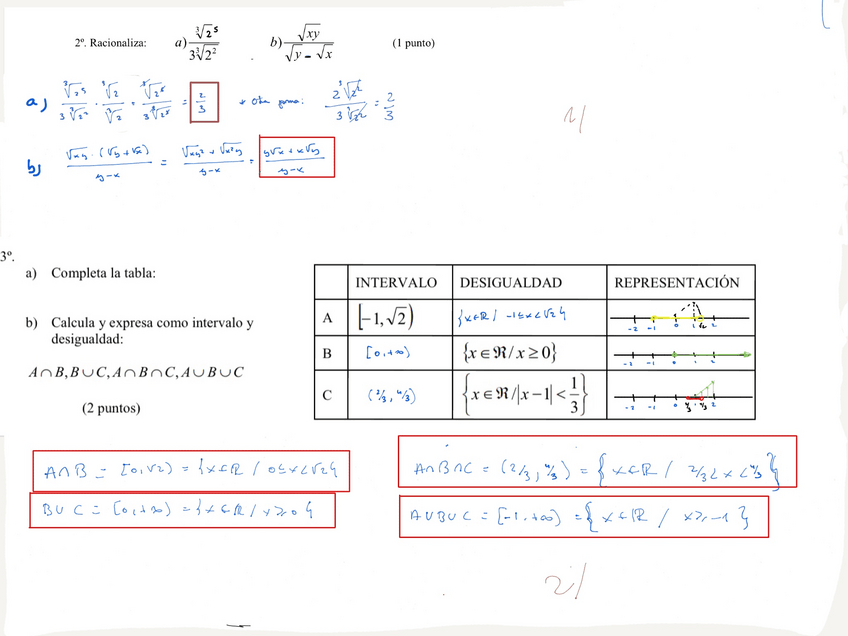 2º. Racionaliza: a) ∛2⁵ / 3∛2² b) √xy / √y - √x (1 punto)
a) ∛2⁵ / 3∛2² · ∛2 / ∛2 = ∛2⁶ / 3∛2³ = 2/3 * Otra forma: 2∛2² / 3∛2² = 2/3
1/
b) √xy · (√y + √x) / y-x = √xy² + √x²y / y-x = y√x + x√y / y-x
3º.
a) Completa la tabla:
b) Calcula y expresa como intervalo y
desigualdad:
A∩B, B∪C, A∩B∩C, A∪B∪C
(2 puntos)
INTERVALO DESIGUALDAD REPRESENTACIÓN
A [-1, √2) {x∈ℝ / -1≤x<√2} -2 -1 0 1 √2 2
B [0,+∞) {x∈ℜ/x≥0} -2 -1 0 1 2
C (2/3, 4/3) {x∈ℜ/|x-1|<1/3} -2 -1 0 2/3 4/3 2
A∩B = [0,√2) = {x∈ℝ / 0≤x<√2}
B∪C = [0,+∞) = {x∈ℝ / x≥0}
A∩B∩C = (2/3, 4/3) = {x∈ℝ / 2/3<x<4/3}
A∪B∪C = [-1,+∞) = {x∈ℝ / x≥-1}
2/